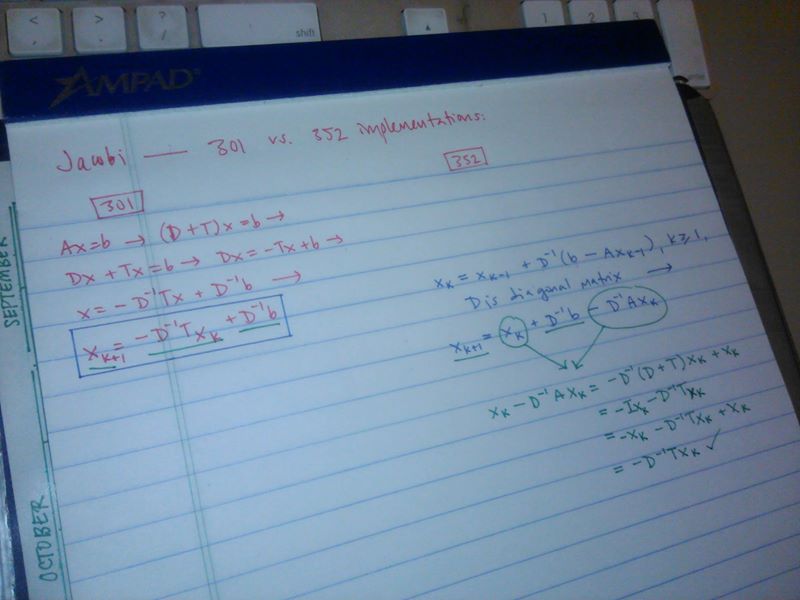 < ,
> .
? /
shift
▲
1
2
3
AMPAD
Jacobi — 301 vs. 352 implementations:
301
Ax=b → (D+T)x=b →
Dx+Tx=b → Dx=-Tx+b →
x=-D⁻¹Tx + D⁻¹b →
xₖ₊₁=-D⁻¹Txₖ+D⁻¹b
352
xₖ = xₖ₋₁ + D⁻¹(b-Axₖ₋₁), k≥1,
D is diagonal matrix →
xₖ₊₁=xₖ+D⁻¹b-D⁻¹Axₖ
xₖ-D⁻¹Axₖ=-D⁻¹(D+T)xₖ+xₖ
=-Ixₖ-D⁻¹Txₖ
=-xₖ-D⁻¹Txₖ+xₖ
=-D⁻¹Txₖ ✓
SEPTEMBER
OCTOBER